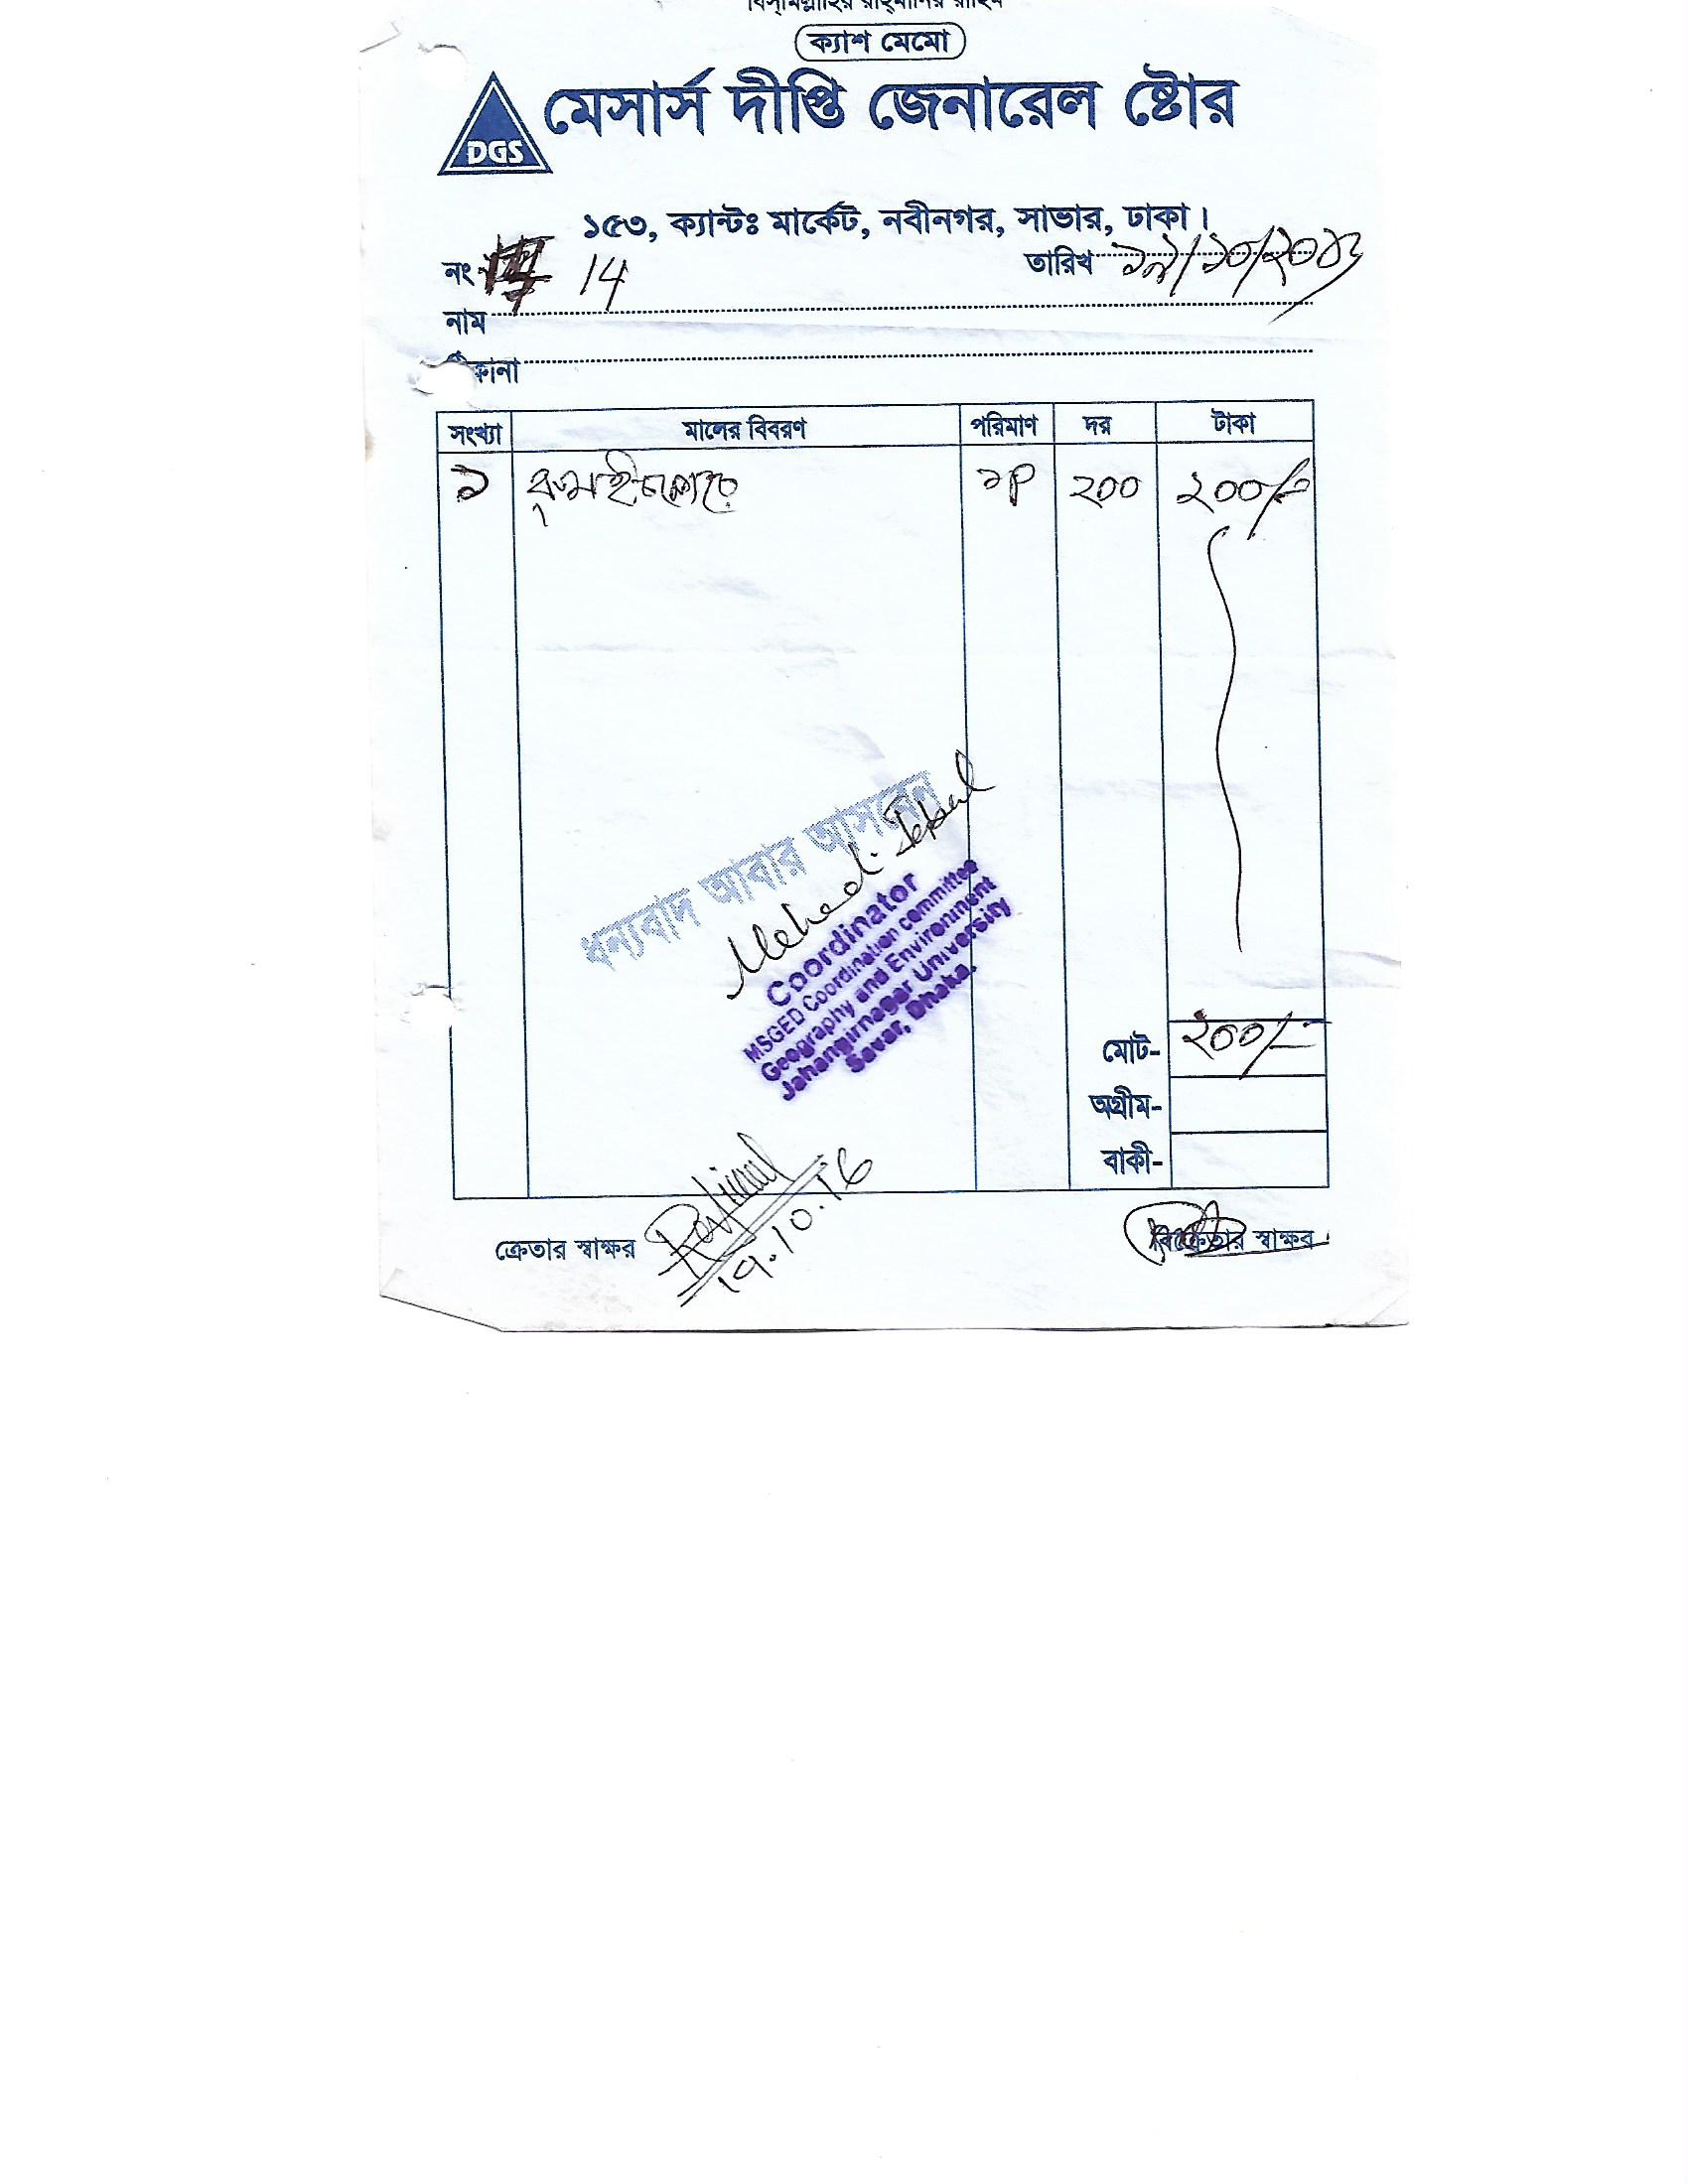 বিস্‌মিল্লাহির রাহ্‌মানির রাহিম
ক্যাশ মেমো
DGS
মেসার্স দীপ্তি জেনারেল ষ্টোর
১৫৩, ক্যান্টঃ মার্কেট, নবীনগর, সাভার, ঢাকা।
নং 14 তারিখ
নাম
ঠিকানা
সংখ্যা মালের বিবরণ পরিমাণ দর টাকা
১ ১P ২০০ ২০০/-
ধন্যবাদ আবার আসবেন
Coordinator
MSGED Coordination committee
Geography and Environment
Jahangirnagar University
Savar, Dhaka.
মোট- ২০০/-
অগ্রীম-
বাকী-
19.10.16
ক্রেতার স্বাক্ষর বিক্রেতার স্বাক্ষর